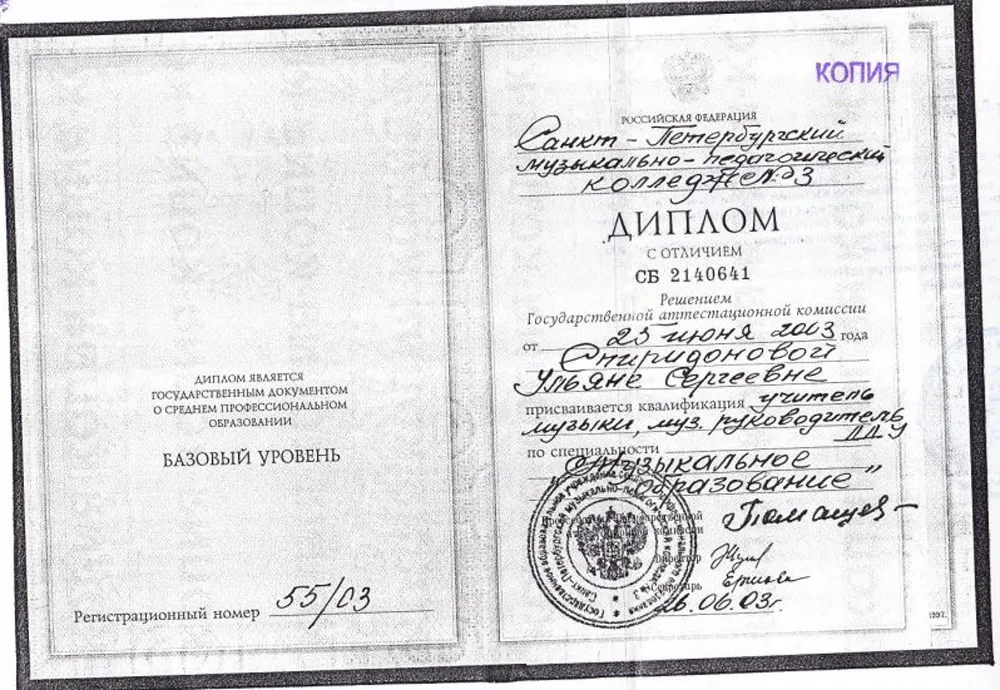 ДИПЛОМ ЯВЛЯЕТСЯ
ГОСУДАРСТВЕННЫМ ДОКУМЕНТОМ
О СРЕДНЕМ ПРОФЕССИОНАЛЬНОМ
ОБРАЗОВАНИИ
БАЗОВЫЙ УРОВЕНЬ
Регистрационный номер 55/03
КОПИЯ
РОССИЙСКАЯ ФЕДЕРАЦИЯ
Санкт-Петербургский
музыкально-педагогический
колледж №3
ДИПЛОМ
С ОТЛИЧИЕМ
СБ 2140641
Решением
Государственной аттестационной комиссии
от 25 июня 2003 года
Спиридоновой
Ульяне Сергеевне
присваивается квалификация учитель
музыки, муз. руководитель
ДДУ
по специальности
„Музыкальное
образование"
Государственной
комиссии
Директор
Секретарь
26.06.03г.
1997.